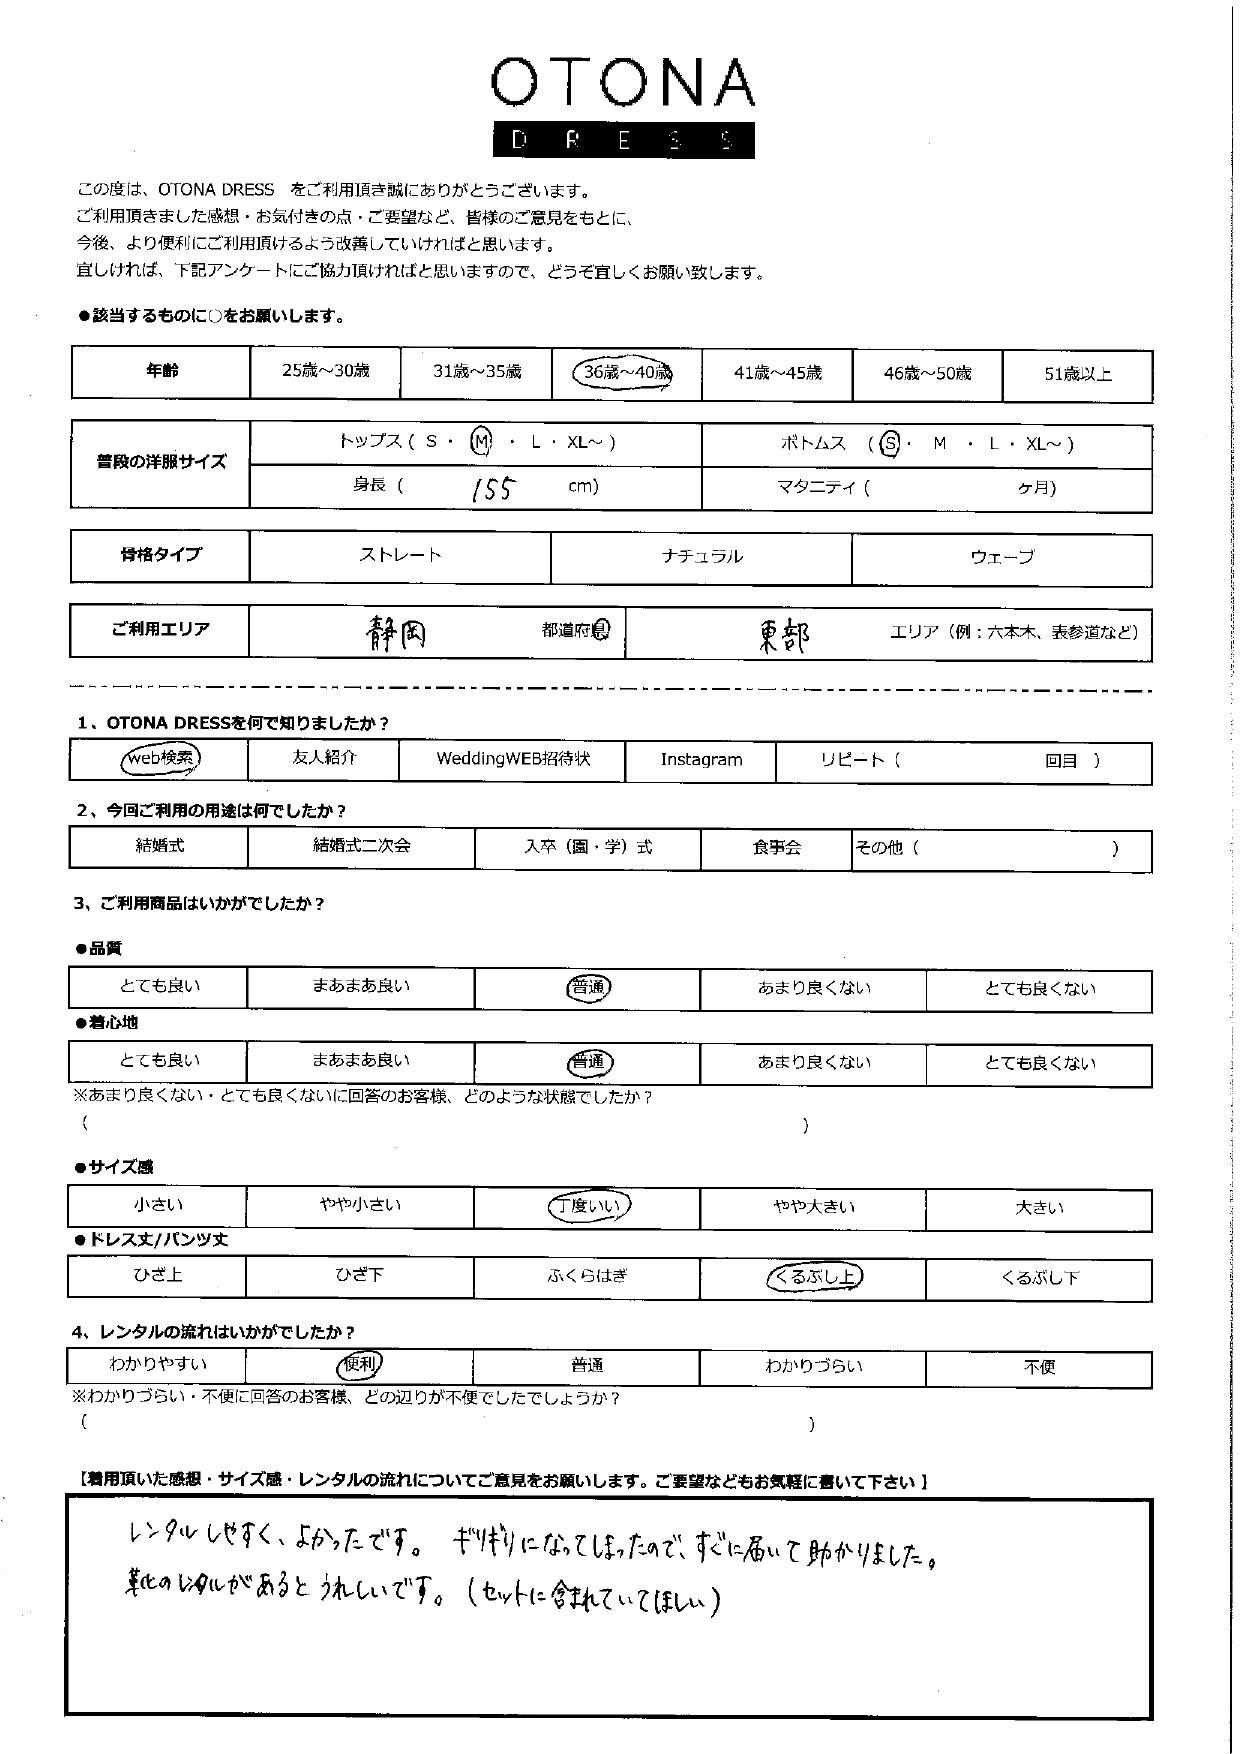 OTONA
DRESS
この度は、OTONA DRESS　をご利用頂き誠にありがとうございます。
ご利用頂きました感想・お気付きの点・ご要望など、皆様のご意見をもとに、
今後、より便利にご利用頂けるよう改善していければと思います。
宜しければ、下記アンケートにご協力頂ければと思いますので、どうぞ宜しくお願い致します。
●該当するものに○をお願いします。
年齢 25歳～30歳 31歳～35歳 36歳～40歳 41歳～45歳 46歳～50歳 51歳以上
普段の洋服サイズ トップス ( S ・ M ・ L ・ XL～ ) ボトムス ( S ・ M ・ L ・ XL～ )
身長 ( 155 cm) マタニティ ( ヶ月)
骨格タイプ ストレート ナチュラル ウェーブ
ご利用エリア 静岡 都道府県 東部 エリア（例：六本木、表参道など）
1、OTONA DRESSを何で知りましたか？
web検索 友人紹介 WeddingWEB招待状 Instagram リピート ( 回目 )
2、今回ご利用の用途は何でしたか？
結婚式 結婚式二次会 入卒（園・学）式 食事会 その他 ( )
3、ご利用商品はいかがでしたか？
●品質
とても良い まあまあ良い 普通 あまり良くない とても良くない
●着心地
とても良い まあまあ良い 普通 あまり良くない とても良くない
※あまり良くない・とても良くないに回答のお客様、どのような状態でしたか？
( )
●サイズ感
小さい やや小さい 丁度いい やや大きい 大きい
●ドレス丈/パンツ丈
ひざ上 ひざ下 ふくらはぎ くるぶし上 くるぶし下
4、レンタルの流れはいかがでしたか？
わかりやすい 便利 普通 わかりづらい 不便
※わかりづらい・不便に回答のお客様、どの辺りが不便でしたでしょうか？
( )
【着用頂いた感想・サイズ感・レンタルの流れについてご意見をお願いします。ご要望などもお気軽に書いて下さい 】
レンタルしやすく、よかったです。 ギリギリになってしまったので、すぐに届いて助かりました。
靴のレンタルがあるとうれしいです。（セットに含まれていてほしい）